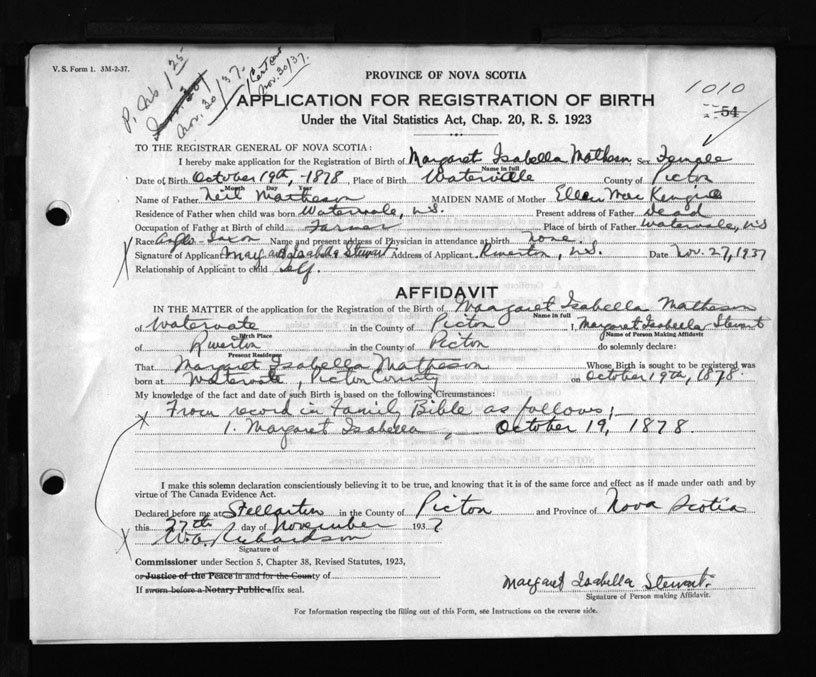 V. S. Form 1. 3M-2-37.
P. Arb 1 25
Nov. 30/37.
Nov. 30/37.
1010
54
PROVINCE OF NOVA SCOTIA
APPLICATION FOR REGISTRATION OF BIRTH
Under the Vital Statistics Act, Chap. 20, R. S. 1923
TO THE REGISTRAR GENERAL OF NOVA SCOTIA:
I hereby make application for the Registration of Birth of Margaret Isabella Matheson Sex Female
Name in full
Date of Birth October 19th, -1878, Place of Birth Watervale County of Picton
Month Day Year
Name of Father Neil Matheson MAIDEN NAME of Mother Ellen MacKenzie
Residence of Father when child was born Watervale, N.S. Present address of Father Dead
Occupation of Father at Birth of child Farmer Place of birth of Father Watervale, N.S
Race Anglo-Saxon Name and present address of Physician in attendance at birth none.
Signature of Applicant Margaret Isabella Stewart Address of Applicant Riverton, N.S. Date Nov. 27, 1937
Relationship of Applicant to child Self.
AFFIDAVIT
IN THE MATTER of the application for the Registration of the Birth of Margaret Isabella Matheson
Name in full
of Watervale in the County of Picton I, Margaret Isabella Stewart
Birth Place Name of Person Making Affidavit
of Riverton in the County of Picton do solemnly declare:
Present Residence
That Margaret Isabella Matheson Whose Birth is sought to be registered was
born at Watervale, Picton County on October 19th, 1878.
My knowledge of the fact and date of such Birth is based on the following Circumstances:
From record in Family Bible as follows;-
1. Margaret Isabella, October 19, 1878.
I make this solemn declaration conscientiously believing it to be true, and knowing that it is of the same force and effect as if made under oath and by
virtue of The Canada Evidence Act.
Declared before me at Stellarton in the County of Picton and Province of Nova Scotia
this 27th day of November 1937
W.A. Richardson
Signature of
Commissioner under Section 5, Chapter 38, Revised Statutes, 1923,
or Justice of the Peace in and for the County of
If sworn before a Notary Public affix seal.
Margaret Isabella Stewart.
Signature of Person making Affidavit.
For Information respecting the filling out of this Form, see Instructions on the reverse side.